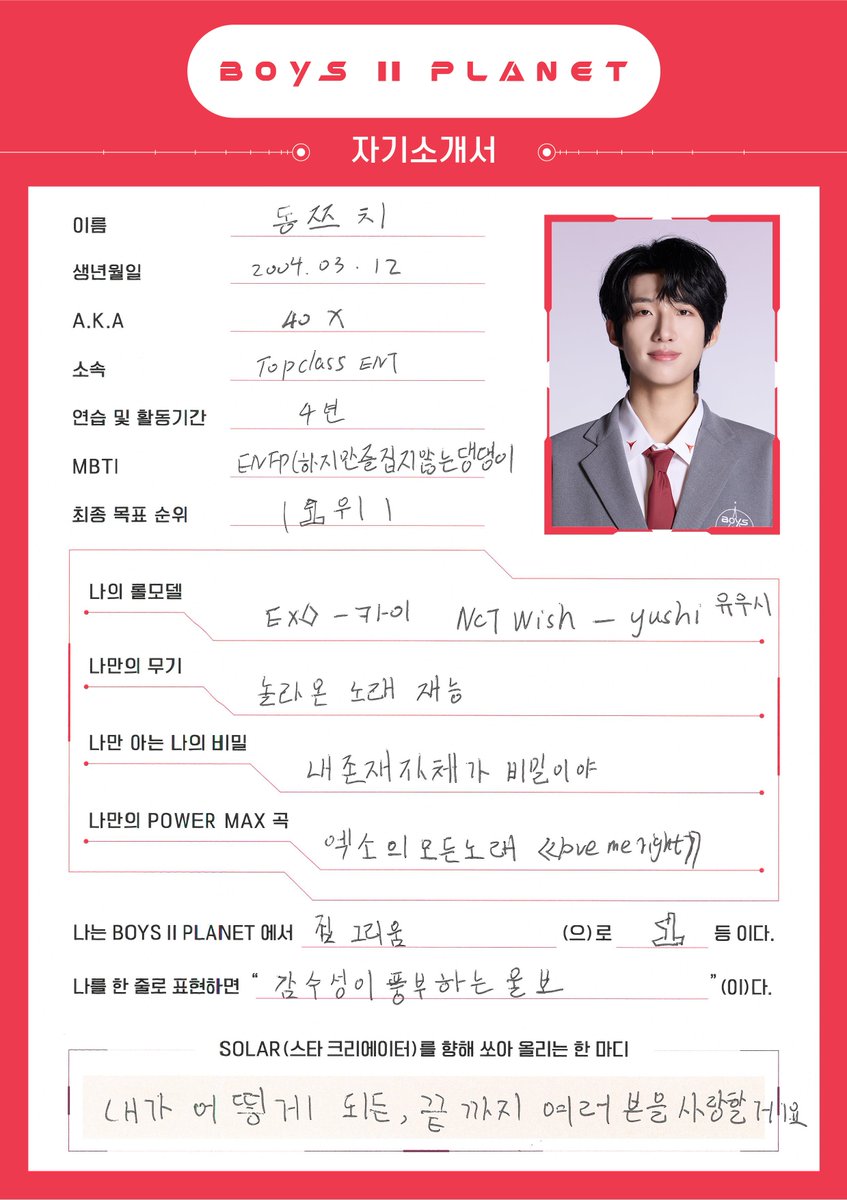 BOYS II PLANET
자기소개서
이름 동쯔치
생년월일 2004.03.12
A.K.A 40 X
소속 Topclass ENT
연습 및 활동기간 4년
MBTI ENFP(하지만졸집지않는댕댕이
최종 목표 순위 위
나의 롤모델 EXO - 카이 NCT Wish - yushi 유우시
나만의 무기 놀라온 노래 재능
나만 아는 나의 비밀 내존재자체가 비밀이야
나만의 POWER MAX 곡 엑소의모든노래 《love me right》
나는 BOYS II PLANET 에서 집 그리움 (으)로 등 이다.
나를 한 줄로 표현하면 “ 감수성이 풍부하는 울보 ” (이)다.
SOLAR(스타 크리에이터)를 향해 쏘아 올리는 한 마디
내가 어떻게 되든, 끝까지 여러분을 사랑할게요
BOYS